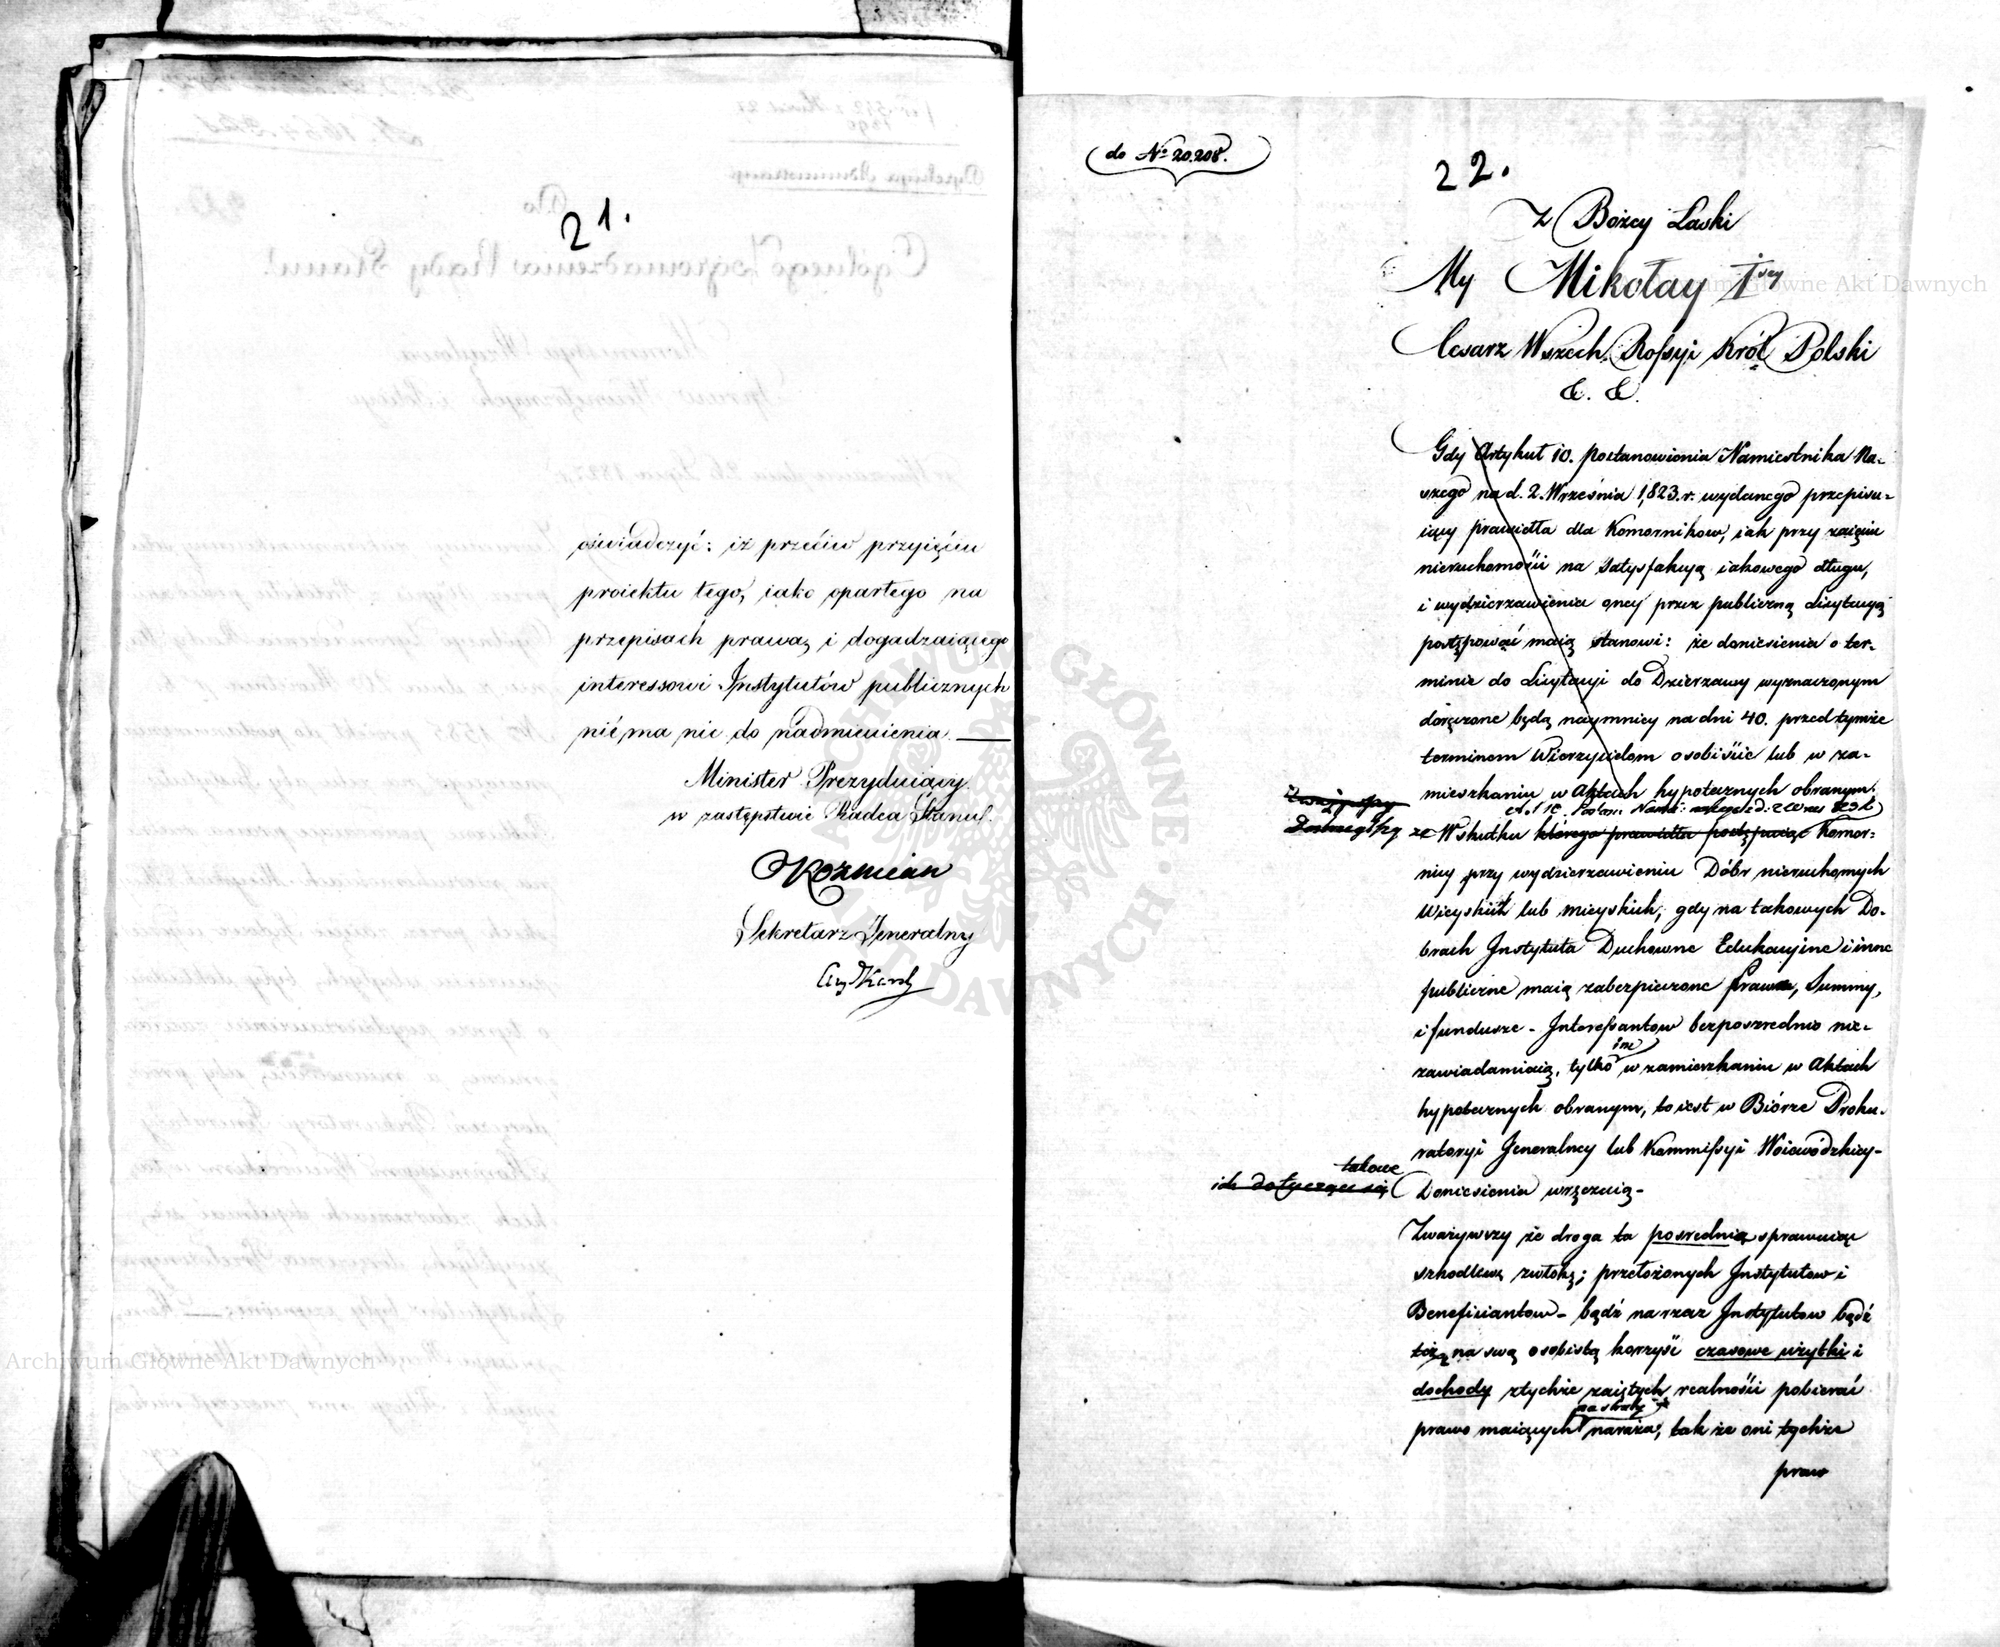 21.
oświadczyć: iż przeciw przyięciu
proiektu tego, iako opartego na
przepisach prawa, i dogadzaiącego
interessowi Instytutów publicznych
nié ma nic do nadmienienia. —
Minister Prezyduiący.
w zastępstwie Radca Stanu.
Kozmian
Sekretarz Jeneralny
do Nº 20.208.
22.
Z Bożey Łaski
My Mikołay Iszy
Cesarz Wszech Rossyi Król Polski
&. &.
Gdy Artykuł 10. postanowienia Namiestnika Na-
szego na d. 2. Września 1,823. r. wydanego przepisu-
iący prawidła dla Komorników, iak przy zaięciu
nieruchomości na satysfakcyą iakowego długu,
i wydzierzawieniu oney przez publiczną licytacyą
postępować maią stanowi: że doniesienia o ter-
minie do Licytacyi do Dzierzawy wyznaczonym
doręczone będą naymniey na dni 40. przed tymże
terminem Wierzycielom osobiście lub w za-
mieszkaniu w Aktach hypotecznych obranym.
ze Wskutku którego prawidła postępuiąc Komor-
nicy przy wydzierzawieniu Dóbr nieruchomych
Wieyskich lub mieyskich, gdy na takowych Do-
brach Instytuta Duchowne Edukacyine i inne
publiczne maią zabezpieczone prawa, Summy,
i fundusze - Interessantow bezposrednio nie-
im
zawiadamiaią, tylko w zamieszkaniu w Aktach
hypotecznych obranym, to iest w Biórze Proku-
ratoryi Jeneralney lub Kommissyi Woiewódzkiey-
takowe
ich dotyczące się Doniesienia wręczaią-
Zważywszy że droga ta posrednia sprawuiąc
szkodliwą zwłokę; przełożonych Instytutow i
Beneficiantow - bądź na rzecz Instytutow bądź
też na swą osobistą korzyść czasowe użytki i
dochody z tychże zaiętych realności pobierać
na straty
prawo maiących naraża, tak że oni tychże
praw
Archiwum Główne Akt Dawnych